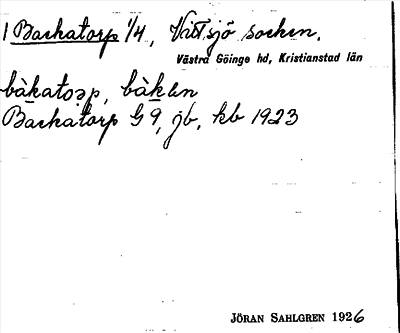 1 Backatorp 1/4, Vittsjö socken.
Västra Göinge hd, Kristianstad län
bàkatorp, bàkan
Backatorp G 9, jb, kb 1923
JÖRAN SAHLGREN 1926